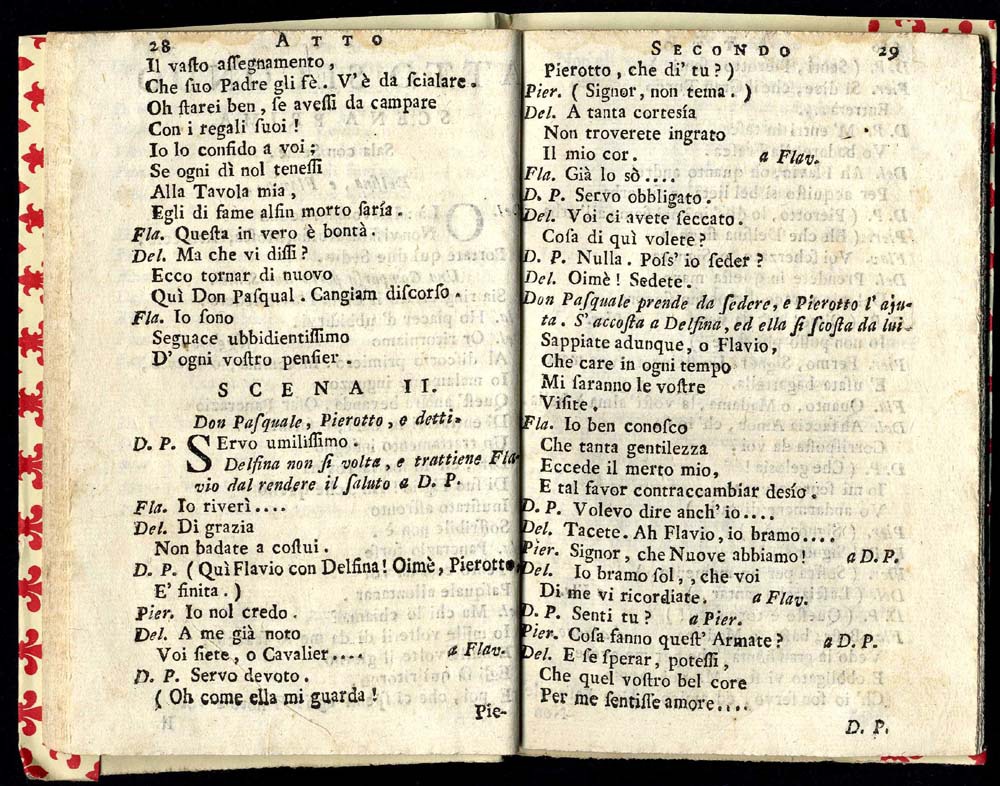 28 ATTO
Il vaſto aſſegnamento,
Che ſuo Padre gli fè. V'è da ſcialare.
Oh ſtarei ben, ſe aveſſi da campare
Con i regali ſuoi!
Io lo confido a voi;
Se ogni dì nol teneſſi
Alla Tavola mia,
Egli di fame alfin morto ſaría.
Fla. Queſta in vero è bontà.
Del. Ma che vi diſſi?
Ecco tornar di nuovo
Quì Don Paſqual. Cangiam diſcorſo.
Fla. Io ſono
Seguace ubbidientiſſimo
D' ogni voſtro penſier.
SCENA II.
Don Paſquale, Pierotto, e detti.
D. P. SErvo umiliſſimo.
Delfina non ſi volta, e trattiene Fla-
vio dal rendere il ſaluto a D. P.
Fla. Io riverì....
Del. Di grazia
Non badate a coſtui.
D. P. (Quì Flavio con Delfina! Oimè, Pierotto,
E' finita.)
Pier. Io nol credo.
Del. A me già noto
Voi ſiete, o Cavalier.... a Flav.
D. P. Servo devoto.
(Oh come ella mi guarda!
Pie-
SECONDO 29
Pierotto, che di' tu?)
Pier. (Signor, non tema.)
Del. A tanta corteſía
Non troverete ingrato
Il mio cor. a Flav.
Fla. Già lo sò....
D. P. Servo obbligato.
Del. Voi ci avete ſeccato.
Coſa di quì volete?
D. P. Nulla. Poſſ' io ſeder?
Del. Oimè! Sedete.
Don Paſquale prende da ſedere, e Pierotto l' aju-
ta. S' accoſta a Delfina, ed ella ſi ſcoſta da lui.
Sappiate adunque, o Flavio,
Che care in ogni tempo
Mi ſaranno le voſtre
Viſite.
Fla. Io ben conoſco
Che tanta gentilezza
Eccede il merto mio,
E tal favor contraccambiar desío.
D. P. Volevo dire anch' io....
Del. Tacete. Ah Flavio, io bramo....
Pier. Signor, che Nuove abbiamo! a D. P.
Del. Io bramo ſol,, che voi
Di me vi ricordiate. a Flav.
D. P. Senti tu? a Pier.
Pier. Coſa fanno queſt' Armate? a D. P.
Del. E ſe ſperar, poteſſi,
Che quel voſtro bel core
Per me ſentiſſe amore....
D. P.